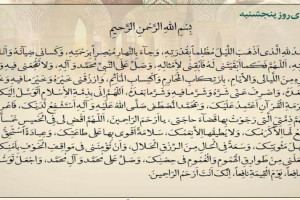 ی روز پنجشنبه
بِسْمِ اللهِ الرَّحْمنِ الرَّحیمِ
لِلّهِ الَّذی اَذْهَبَ اللَّیْلَ مُظْلِماً بِقُدْرَتِهِ، وَجآءَ بِالنَّهارِ مُبْصِراً بِرَحْمَتِهِ، وَکَسانی ضِیآئَهُ وَاَنَا
اَللّهُمَّ فَکَما اَبْقَیْتَنی لَهُ فَاَبْقِنی لِاَمْثالِهِ، وَصَلِّ عَلَی النَّبِیِّ مُحَمَّدٍ وَآلِهِ، وَلا تَفْجَعْنی فیهِ
اللَّیالی وَالْاَیّامِ، بِارْتِکابِ الْمَحارِمِ وَاکْتِسابِ الْمَآثِمِ، وَارْزُقْنی خَیْرَهُ وَخَیْرَ ما فیهِ
وَاصْرِفْ عَنّی شَرَّهُ وَشَرَّ ما فیهِ وَشَرَّ ما بَعْدَهُ، اَللّهُمَّ اِنّی بِذِمَّةِ الْاِسْلامِ
الْقُرْآنِ اَعْتَمِدُ عَلَیْکَ، وَبِمُحَمَّدٍ الْمُصْطَفی صَلَّی اللهُ عَلَیْهِ وَآلِهِ اَسْتَشْفِعُ لَدَیْکَ،
ذِمَّتِیَ الَّتی رَجَوْتُ بِها قَضآءَ حاجَتی، یا اَرْحَمَ الرّاحِمینَ، اَللّهُمَّ اقْضِ لی فِی الْخَمیسِ خَمْساً
لَها اِلاّ کَرَمُکَ، وَلا یُطیقُها اِلاّ نِعَمُکَ، سَلامَةً اَقْوی بِها عَلی طاعَتِکَ، وَعِبادَةً اَسْتَحِقُّ
ثَوابِکَ، وَسَعَةً فِی الْحالِ مِنَ الرِّزْقِ الْحَلالِ، وَاَنْ تُؤْمِنَنی فی مَواقِفِ الْخَوْفِ بِاَمْنِکَ
مِنْ طَوارِقِ الْهُمُومِ وَالْغُمُومِ فی حِصْنِکَ، وَصَلِّ عَلی مُحَمَّدٍ وَآلِ مُحَمَّدٍ، وَاجْعَلْ تَوَسُّلی
یَوْمَ الْقِیمَةِ نافِعاً، اِنَّکَ اَنْتَ اَرْحَمُ الرّاحِمینَ.